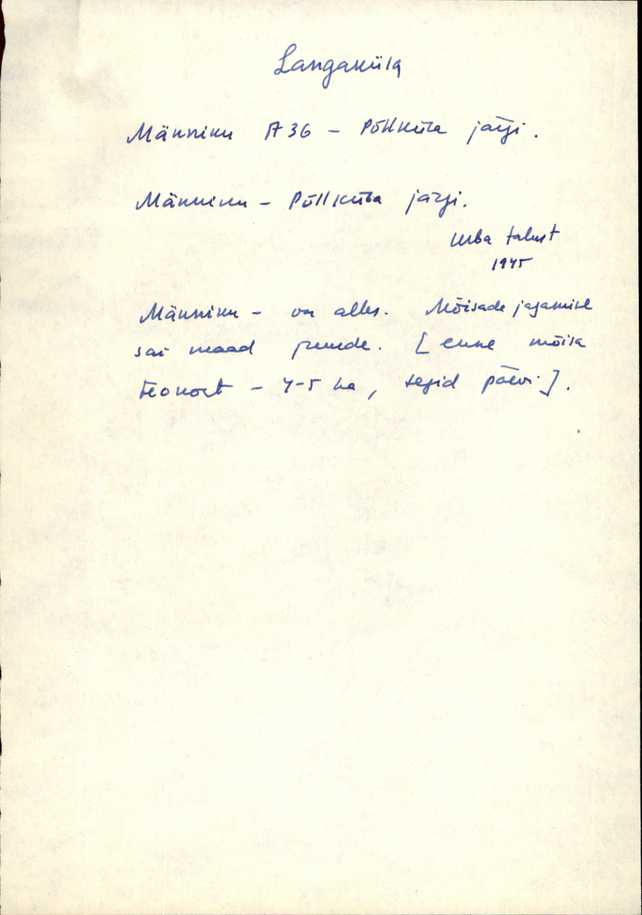 Langaküla
Männiku A36 - Põllküla järgi.
Männiku - Põllküla järgi.
talust
1945
Männiku - on alles. Mõisade jagamise
sai maad juurde. [enne mõisa
teokoht - 4-5 ha, tegid päevi].